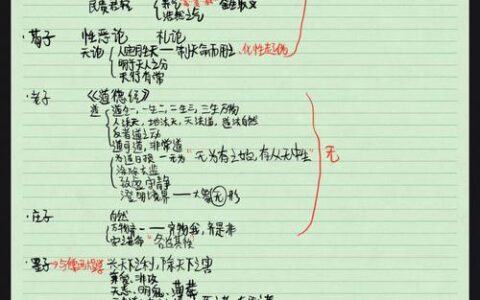 民贵君轻
浩然之气
·荀子 性恶论 礼论
天论 人定胜天——制天命而用之、化性起伪
明于天人之分
天行有常
·老子 《道德经》
道 道生一,一生二,二生三,三生万物
人法天,地法天,天法道,道法自然
反者道之动
道可道,非常道
为道日损——无为 "无为有之始,有从无中生" 无
涤除玄览
致虚守静
澄明境界——大象无形
·庄子 自然
万物齐一——究物我,齐是非
安之若命 "各适其性"
·墨子 兴天下之利,除天下之害
兼爱、非攻
天志、明鬼、薄葬